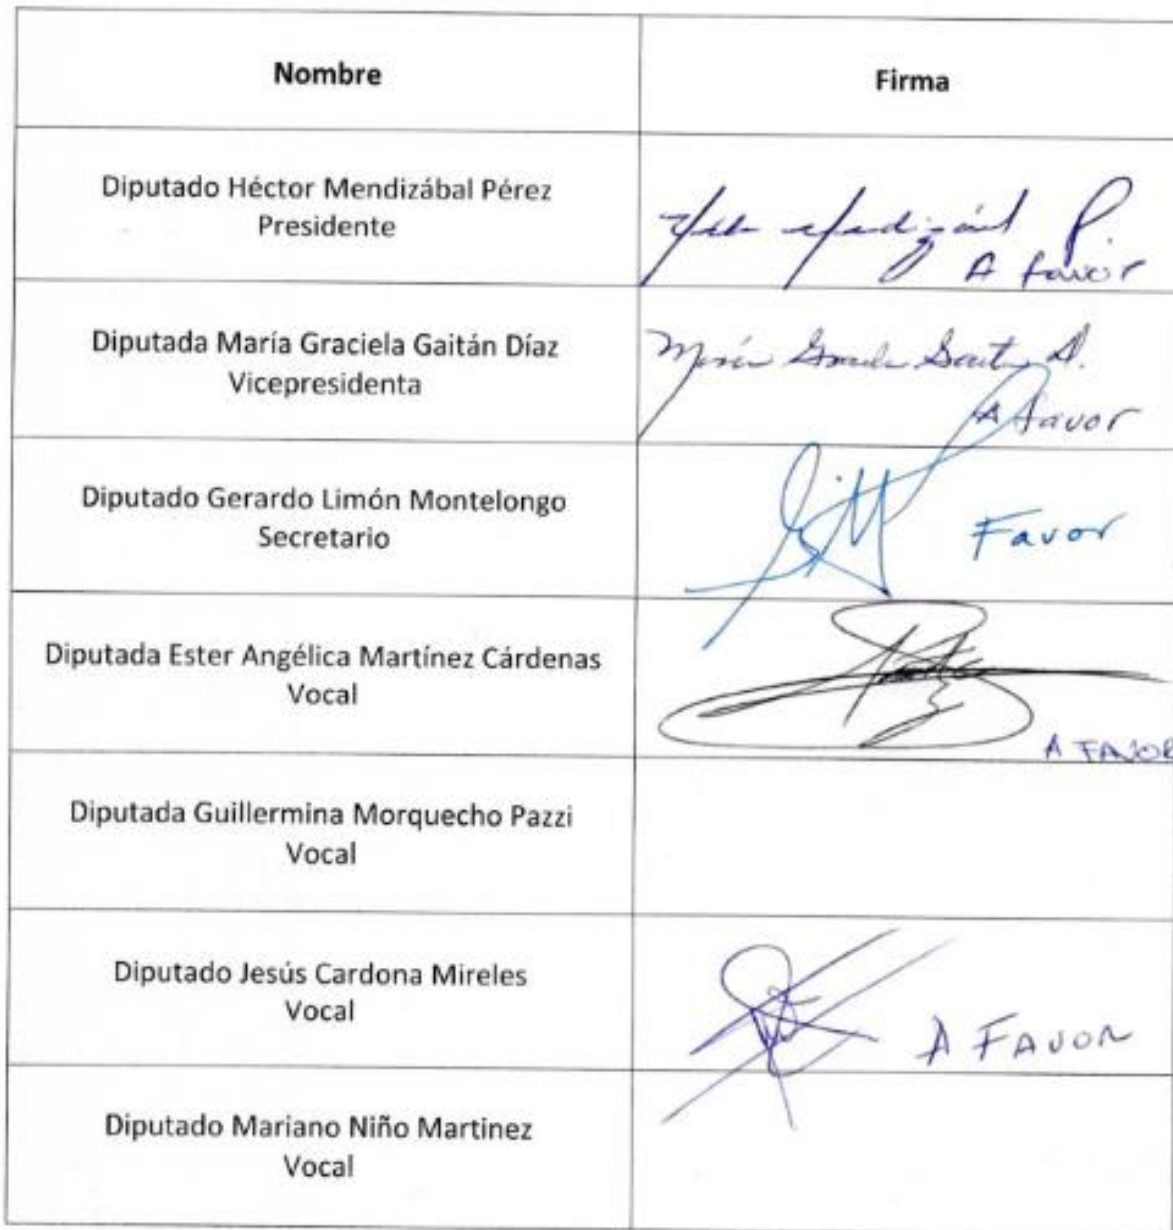 Nombre
Firma
Diputado Héctor Mendizábal Pérez
Presidente
A favor
Diputada María Graciela Gaitán Díaz
Vicepresidenta
A favor
Diputado Gerardo Limón Montelongo
Secretario
Favor
Diputada Ester Angélica Martínez Cárdenas
Vocal
A FAVOR
Diputada Guillermina Morquecho Pazzi
Vocal
Diputado Jesús Cardona Mireles
Vocal
A FAVOR
Diputado Mariano Niño Martinez
Vocal